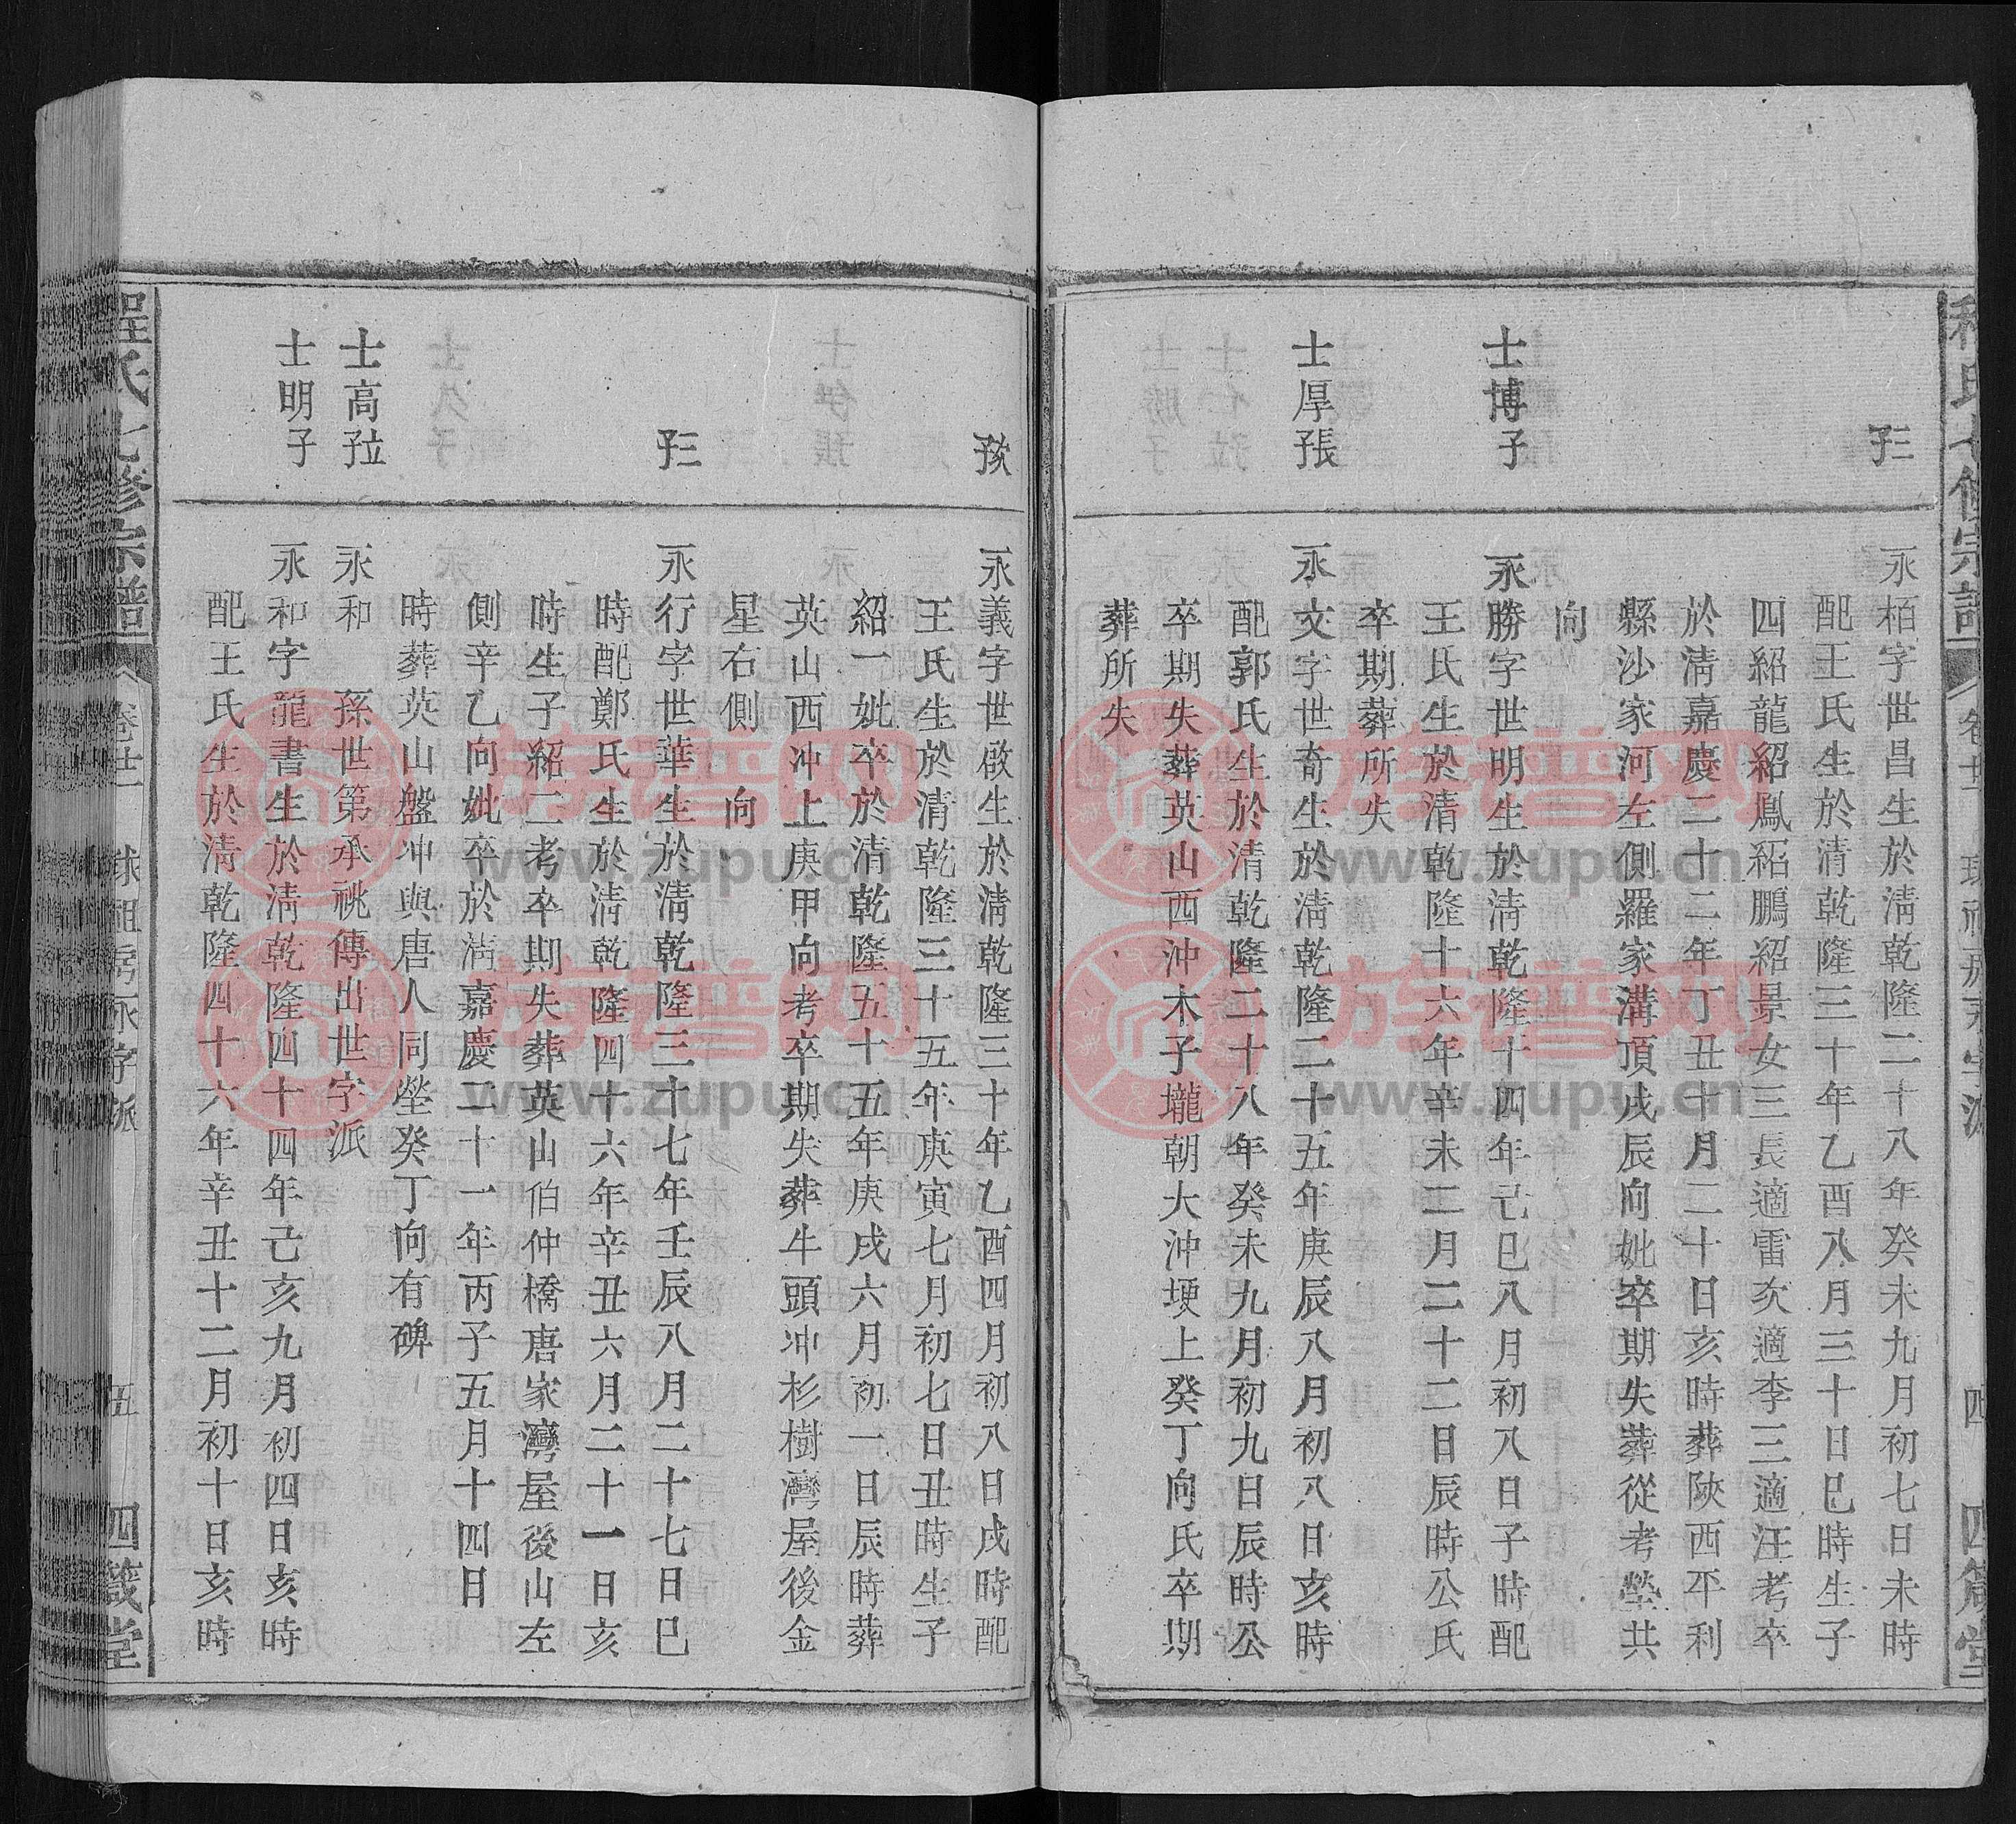 程氏七修宗譜 卷廿一 球祖房永字派 四 四箴堂
三子
永栢字世昌生於清乾隆二十八年癸未九月初七日未時
配王氏生於清乾隆三十年乙酉八月三十日巳時生子
四紹龍紹鳳紹鵬紹景女三長適雷次適李三適汪考卒
於清嘉慶二十二年丁丑十月二十日亥時葬陝西平利
縣沙家河左側羅家溝頂戌辰向妣卒期失葬從考塋共
向
士博子
永勝字世明生於清乾隆十四年己巳八月初八日子時配
王氏生於清乾隆十六年辛未二月二十二日辰時公氏
卒期葬所失
士厚長子
永文字世奇生於清乾隆二十五年庚辰八月初八日亥時
配郭氏生於清乾隆二十八年癸未九月初九日辰時公
卒期失葬英山西沖木子壠朝大沖埂上癸丁向氏卒期
葬所失
次子
永義字世啟生於清乾隆三十年乙酉四月初八日戌時配
王氏生於清乾隆三十五年庚寅七月初七日丑時生子
紹一妣卒於清乾隆五十五年庚戌六月初一日辰時葬
英山西冲上庚甲向考卒期失葬牛頭冲杉樹灣屋後金
星右側 向
三子
永行字世華生於清乾隆三十七年壬辰八月二十七日巳
時配鄭氏生於清乾隆四十六年辛丑六月二十一日亥
時生子紹二考卒期失葬英山伯仲橋唐家灣屋後山左
側辛乙向妣卒於清嘉慶二十一年丙子五月十四日
時葬英山盤冲與唐人同塋癸丁向有碑
士高立子
永和 孫世第承祧傳出世字派
士明子
永和字龍書生於清乾隆四十四年己亥九月初四日亥時
配王氏生於清乾隆四十六年辛丑十二月初十日亥時
程氏七修宗譜 卷廿一 球祖房永字派 五 四箴堂
族譜网
www.zupu.cn
族譜网
www.zupu.cn
族譜网
www.zupu.cn
族譜网
www.zupu.cn